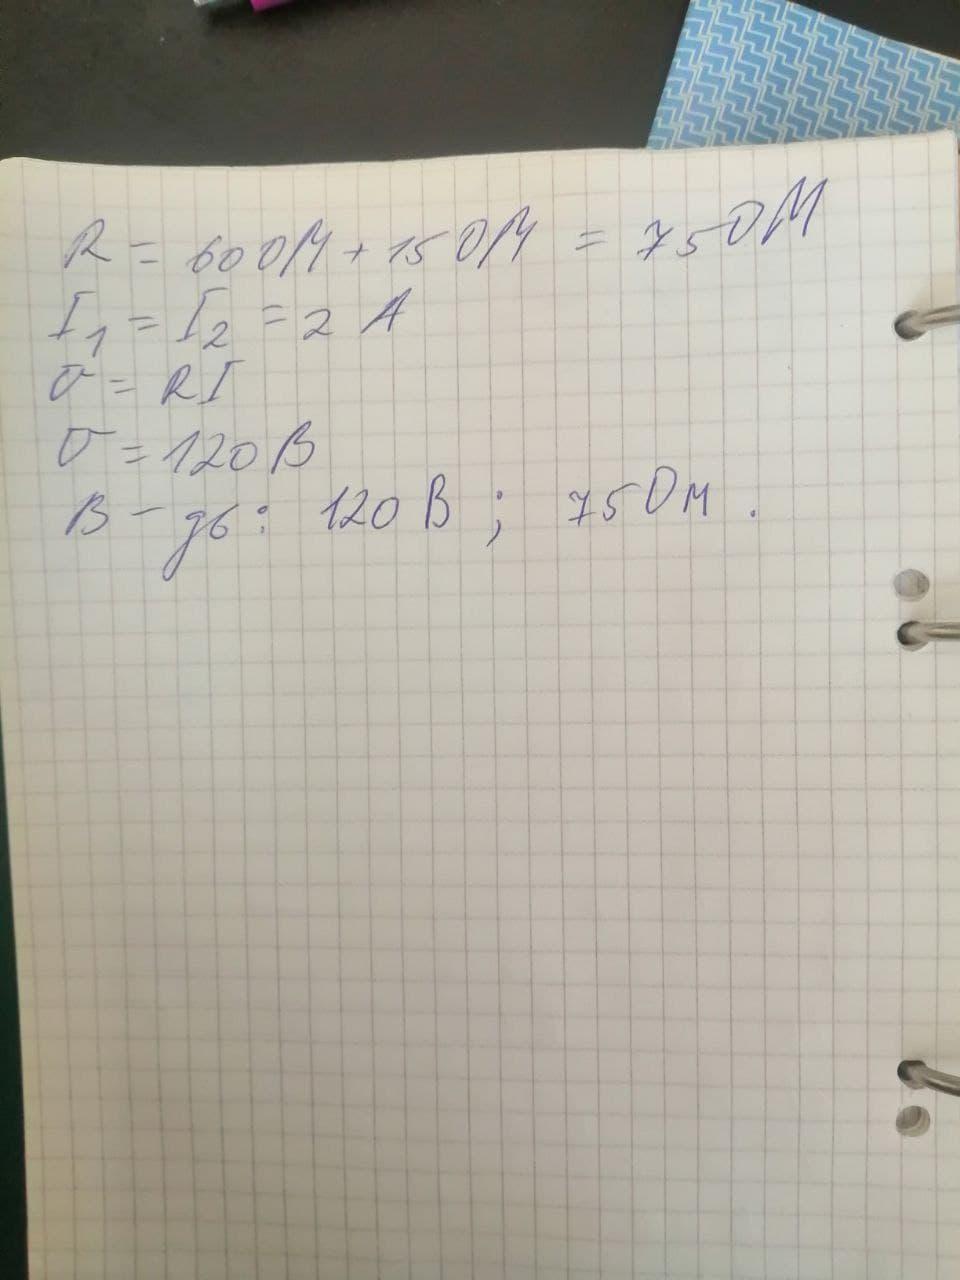 R = 60 ОМ + 15 ОМ = 75 ОМ
I₁ = I₂ = 2 А
U = RI
U = 120 В
В-дь: 120 В ; 75 Ом .